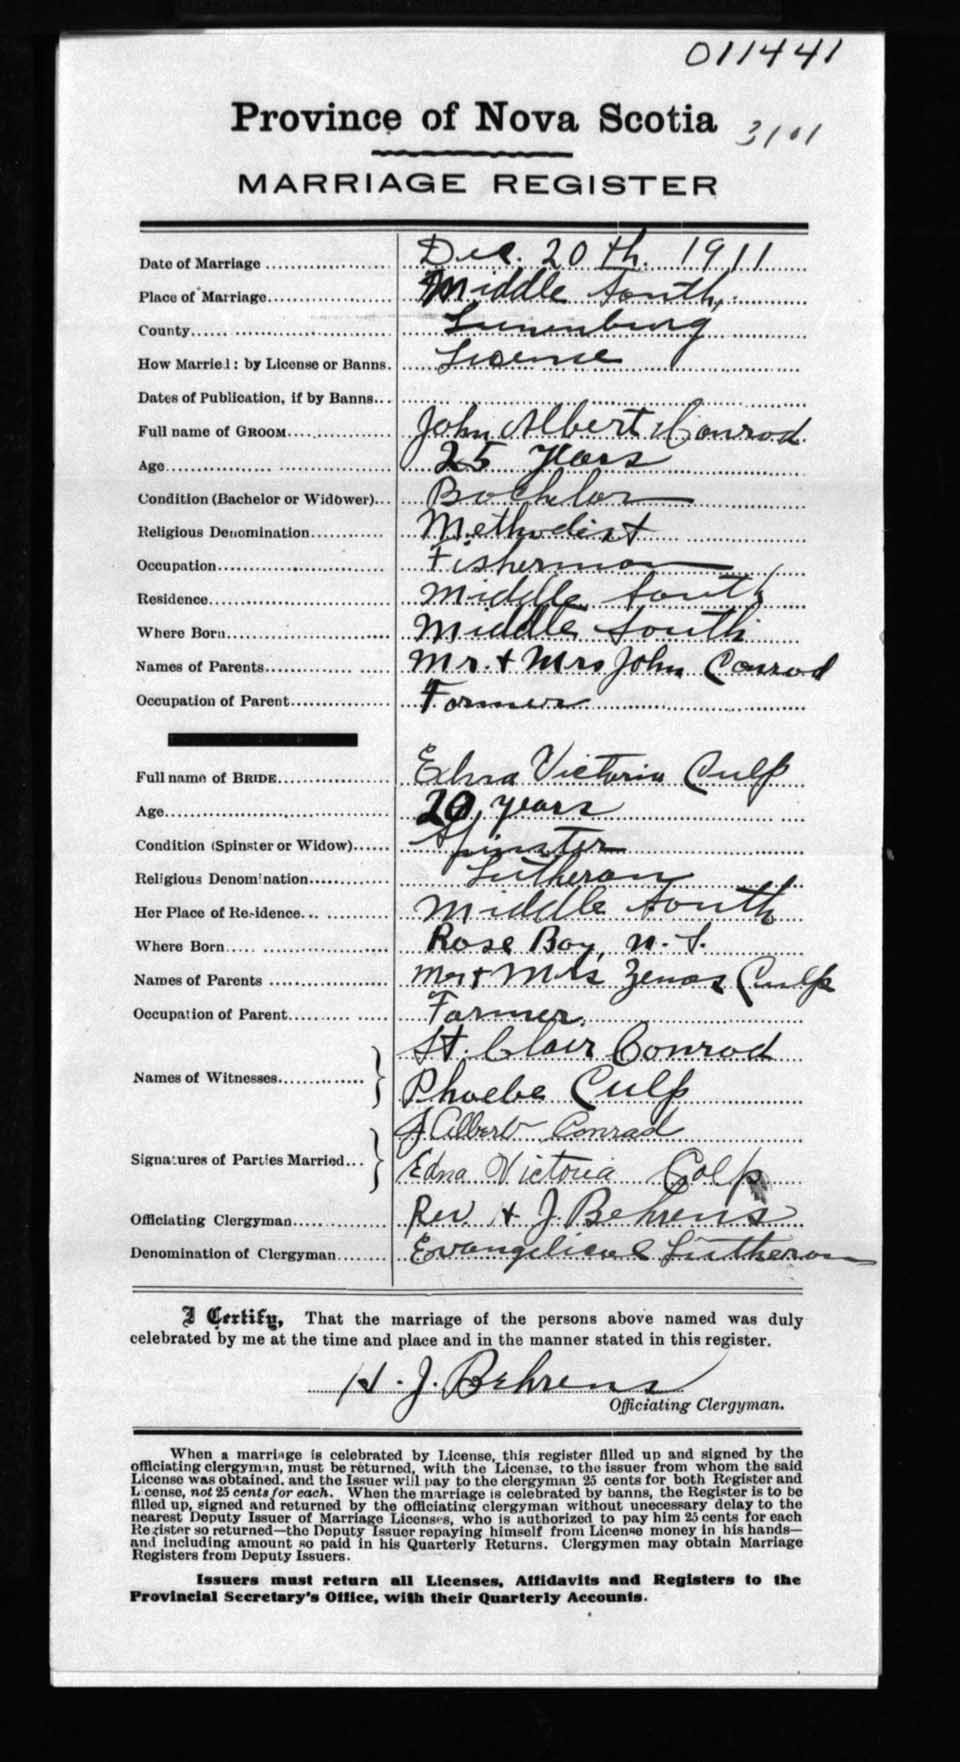 011441
Province of Nova Scotia
3101
MARRIAGE REGISTER
Date of Marriage Dec. 20th. 1911
Place of Marriage Middle South,
County Lunenburg
How Married: by License or Banns. License
Dates of Publication, if by Banns
Full name of GROOM John Albert Conrod
Age 25 years
Condition (Bachelor or Widower) Bachelor
Religious Denomination Methodist
Occupation Fisherman
Residence Middle South
Where Born Middle South
Names of Parents Mr. + Mrs John Conrod
Occupation of Parent Farmer
Full name of BRIDE Edna Victoria Culp
Age 20 years
Condition (Spinster or Widow) Spinster
Religious Denomination Lutheran
Her Place of Residence Middle South
Where Born Rose Bay, N. S.
Names of Parents Mr + Mrs Zenas Culp
Occupation of Parent Farmer.
St. Clair Conrod
Names of Witnesses
Phoebe Culp
J Albert Conrad
Signatures of Parties Married
Edna Victoria Colp
Officiating Clergyman Rev. H J Behrens
Denomination of Clergyman Evangelical Lutheran
I Certify, That the marriage of the persons above named was duly
celebrated by me at the time and place and in the manner stated in this register.
H. J. Behrens
Officiating Clergyman.
When a marriage is celebrated by License, this register filled up and signed by the
officiating clergyman, must be returned, with the License, to the issuer from whom the said
License was obtained, and the Issuer will pay to the clergyman 25 cents for both Register and
License, not 25 cents for each. When the marriage is celebrated by banns, the Register is to be
filled up, signed and returned by the officiating clergyman without unecessary delay to the
nearest Deputy Issuer of Marriage Licenses, who is authorized to pay him 25 cents for each
Register so returned—the Deputy Issuer repaying himself from License money in his hands—
and including amount so paid in his Quarterly Returns. Clergymen may obtain Marriage
Registers from Deputy Issuers.
Issuers must return all Licenses, Affidavits and Registers to the
Provincial Secretary's Office, with their Quarterly Accounts.